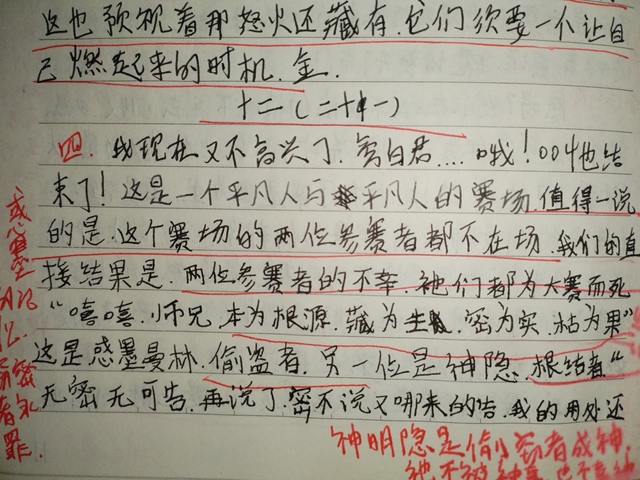 这也预视着那怒火还藏有.它们须要一个让自
己燃起来的时机.金.
十二(二十一)
四.我现在又不高兴了.雪白君....哦!004也结
束了!这是一个平凡人与平凡人的赛场.值得一说
的是.这个赛场的两位参赛者都不在场.我们的直
接结果是.两位参赛者的不幸.祂们都为大赛而死
"嘻嘻.师兄.本为根源.藏为生.密为实.枯为果"
这是惑墨曼林.偷盗者.另一位是神隐.根结者"
无密无可告.再说了.密不说又哪来的告.我的用处还
神明隐是偷者成神,
祂不被
罪.